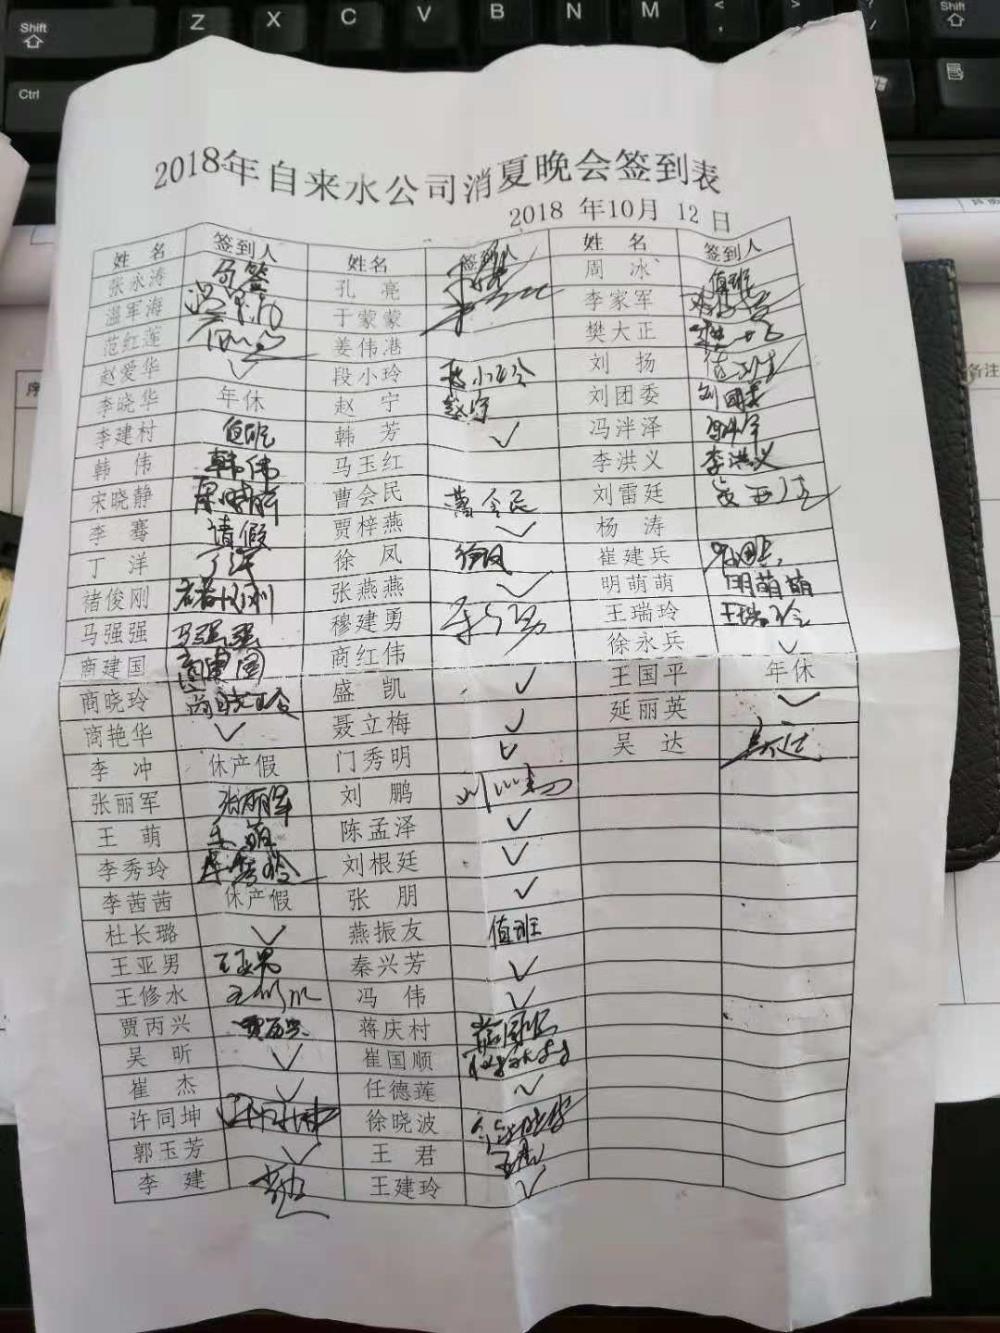 Shift
Z X C V B N M
Shift
Ctrl
2018年自来水公司消夏晚会签到表
2018 年10月 12 日
姓 名 签到人 姓名 签到人 姓 名 签到人
张永涛 孔 亮 周 冰 值班
温军海 于蒙蒙 李家军
范红莲 姜伟港 樊大正
赵爱华 ✓ 段小玲 段小玲 刘 扬
李晓华 年休 赵 宁 赵宁 刘团委 刘团委
李建村 值班 韩 芳 ✓ 冯泮泽
韩 伟 韩伟 马玉红 李洪义 李洪义
宋晓静 宋晓静 曹会民 曹会民 刘雷廷
李 骞 请假 贾梓燕 ✓ 杨 涛
丁 洋 丁洋 徐 凤 徐凤 崔建兵
褚俊刚 褚俊刚 张燕燕 ✓ 明萌萌 明萌萌
马强强 马强强 穆建勇 王瑞玲 王瑞玲
商建国 商建国 商红伟 徐永兵 ✓
商晓玲 商晓玲 盛 凯 ✓ 王国平 年休
商艳华 ✓ 聂立梅 ✓ 延丽英 ✓
李 冲 休产假 门秀明 ✓ 吴 达 吴达
张丽军 张丽军 刘 鹏
王 萌 王萌 陈孟泽 ✓
李秀玲 李秀玲 刘根廷 ✓
李茜茜 休产假 张 朋 ✓
杜长璐 ✓ 燕振友 值班
王亚男 王亚男 秦兴芳 ✓
王修水 王修水 冯 伟 ✓
贾丙兴 贾丙兴 蒋庆村
吴 昕 ✓ 崔国顺
崔 杰 ✓ 任德莲 ✓
许同坤 徐晓波 徐晓波
郭玉芳 ✓ 王 君 王君
李 建 王建玲 ✓
序
备注